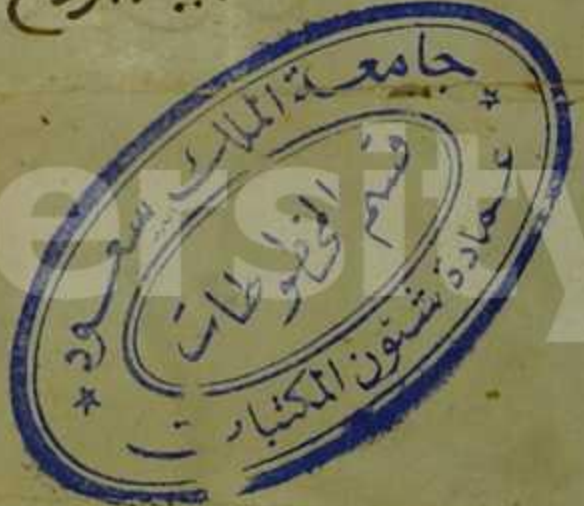 جامعة الملك سعود
قسم المخطوطات
عمادة شئون المكتبات
ersity